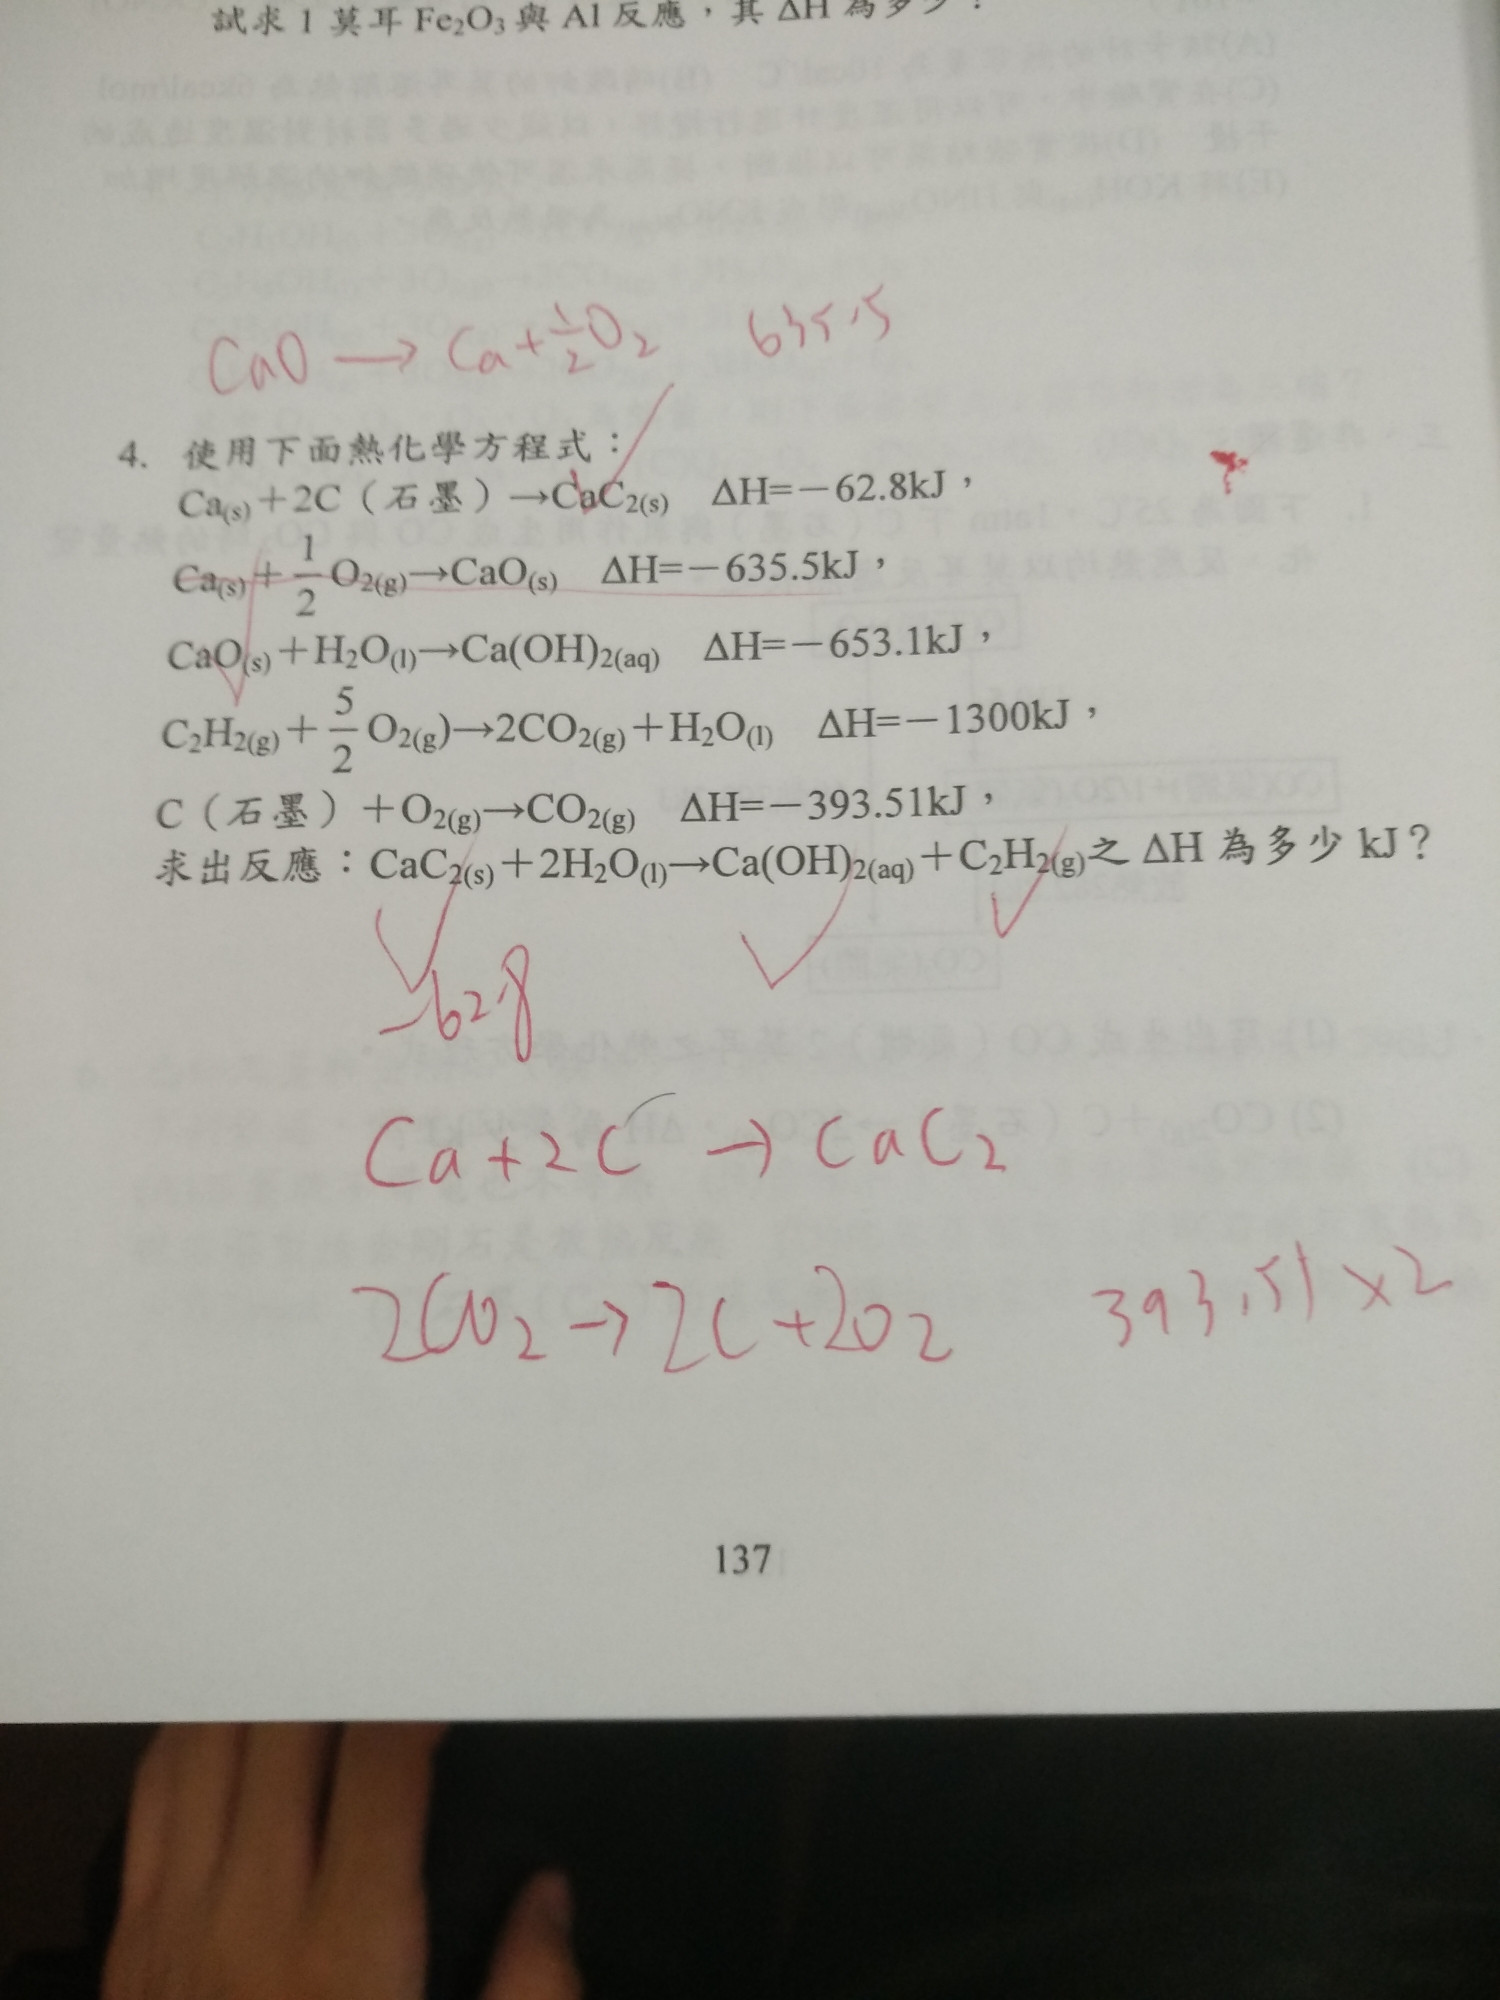 試求 1 莫耳 Fe₂O₃ 與 Al 反應，其 ΔH 為多少？
CaO → Ca+½O₂ 635.5
4. 使用下面熱化學方程式：
Ca(s)＋2C（石墨）→CaC₂(s) ΔH=－62.8kJ，
Ca(s)＋1/2 O₂(g)→CaO(s) ΔH=－635.5kJ，
CaO(s)＋H₂O(l)→Ca(OH)₂(aq) ΔH=－653.1kJ，
C₂H₂(g)＋5/2 O₂(g)→2CO₂(g)＋H₂O(l) ΔH=－1300kJ，
C（石墨）＋O₂(g)→CO₂(g) ΔH=－393.51kJ，
求出反應：CaC₂(s)＋2H₂O(l)→Ca(OH)₂(aq)＋C₂H₂(g)之 ΔH 為多少 kJ？
-62.8
Ca+2C → CaC₂
2CO₂ → 2C+2O₂ 393.51×2
137